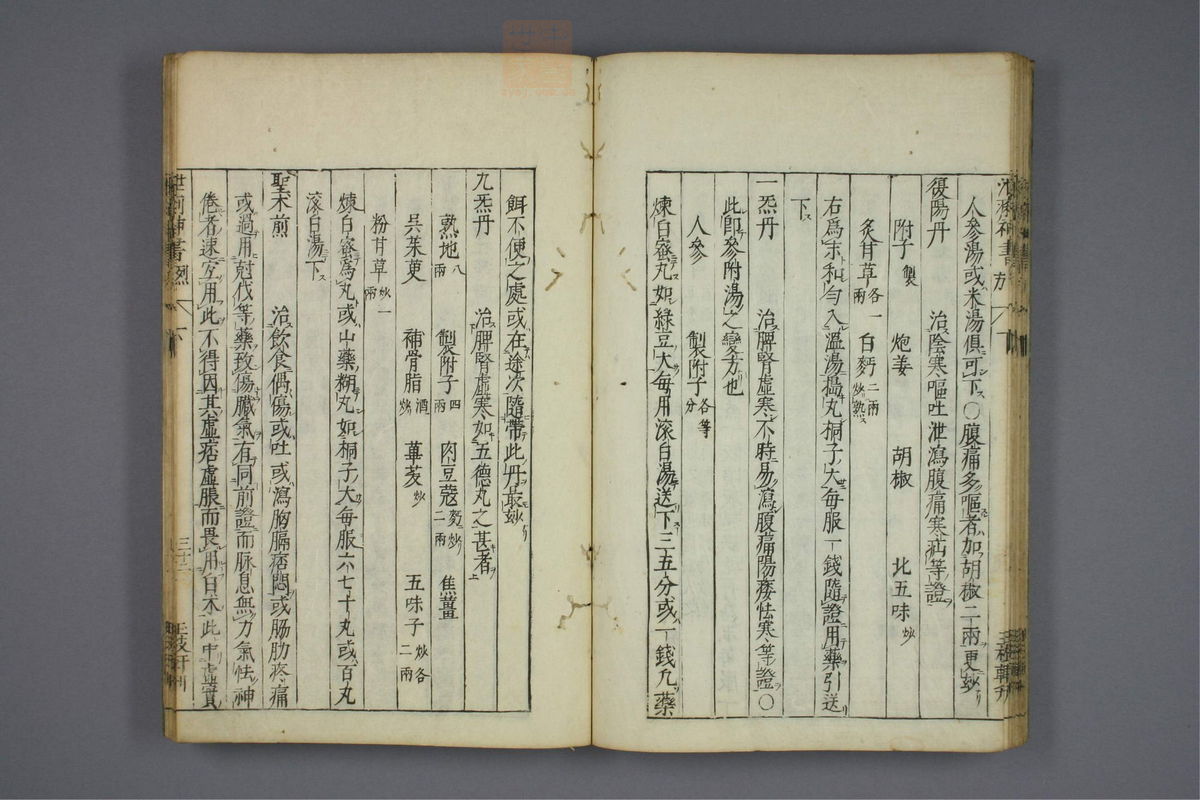 人參湯或米湯俱可下〇腹痛多嘔者加胡椒二兩更妙
復陽丹　治陰寒嘔吐泄瀉腹痛寒疝等證
附子製　炮姜　胡椒　北五味炒
炙甘草各一兩　白麪二兩炒熟
右爲末和勻入溫湯搗丸桐子大每服一錢隨證用藥引送
下
一炁丹　治脾腎虛寒不時易瀉腹痛陽痿怯寒等證〇
此卽參附湯之變方也
人參　製附子各等分
煉白蜜丸如綠豆大每用滾白湯送下三五分或一錢凡藥
餌不便之處或在途次隨帶此丹最妙
九炁丹　治脾腎虛寒如五德丸之甚者
熟地八兩　製附子四兩　肉豆蔻麪炒二兩　焦薑
吳茱萸　補骨脂酒炒　蓽茇炒　五味子炒各二兩
粉甘草炒一兩
煉白蜜爲丸或山藥糊丸如桐子大每服六七十丸或百丸
滾白湯下
聖朮煎　治飲食偶傷或吐或瀉胸膈痞悶或脇肋疼痛
或過用尅伐等藥致傷臟氣有同前證而脉息無力氣怯神
倦者速宜用此不得因其虛痞虛脹而畏用白朮此中虛實